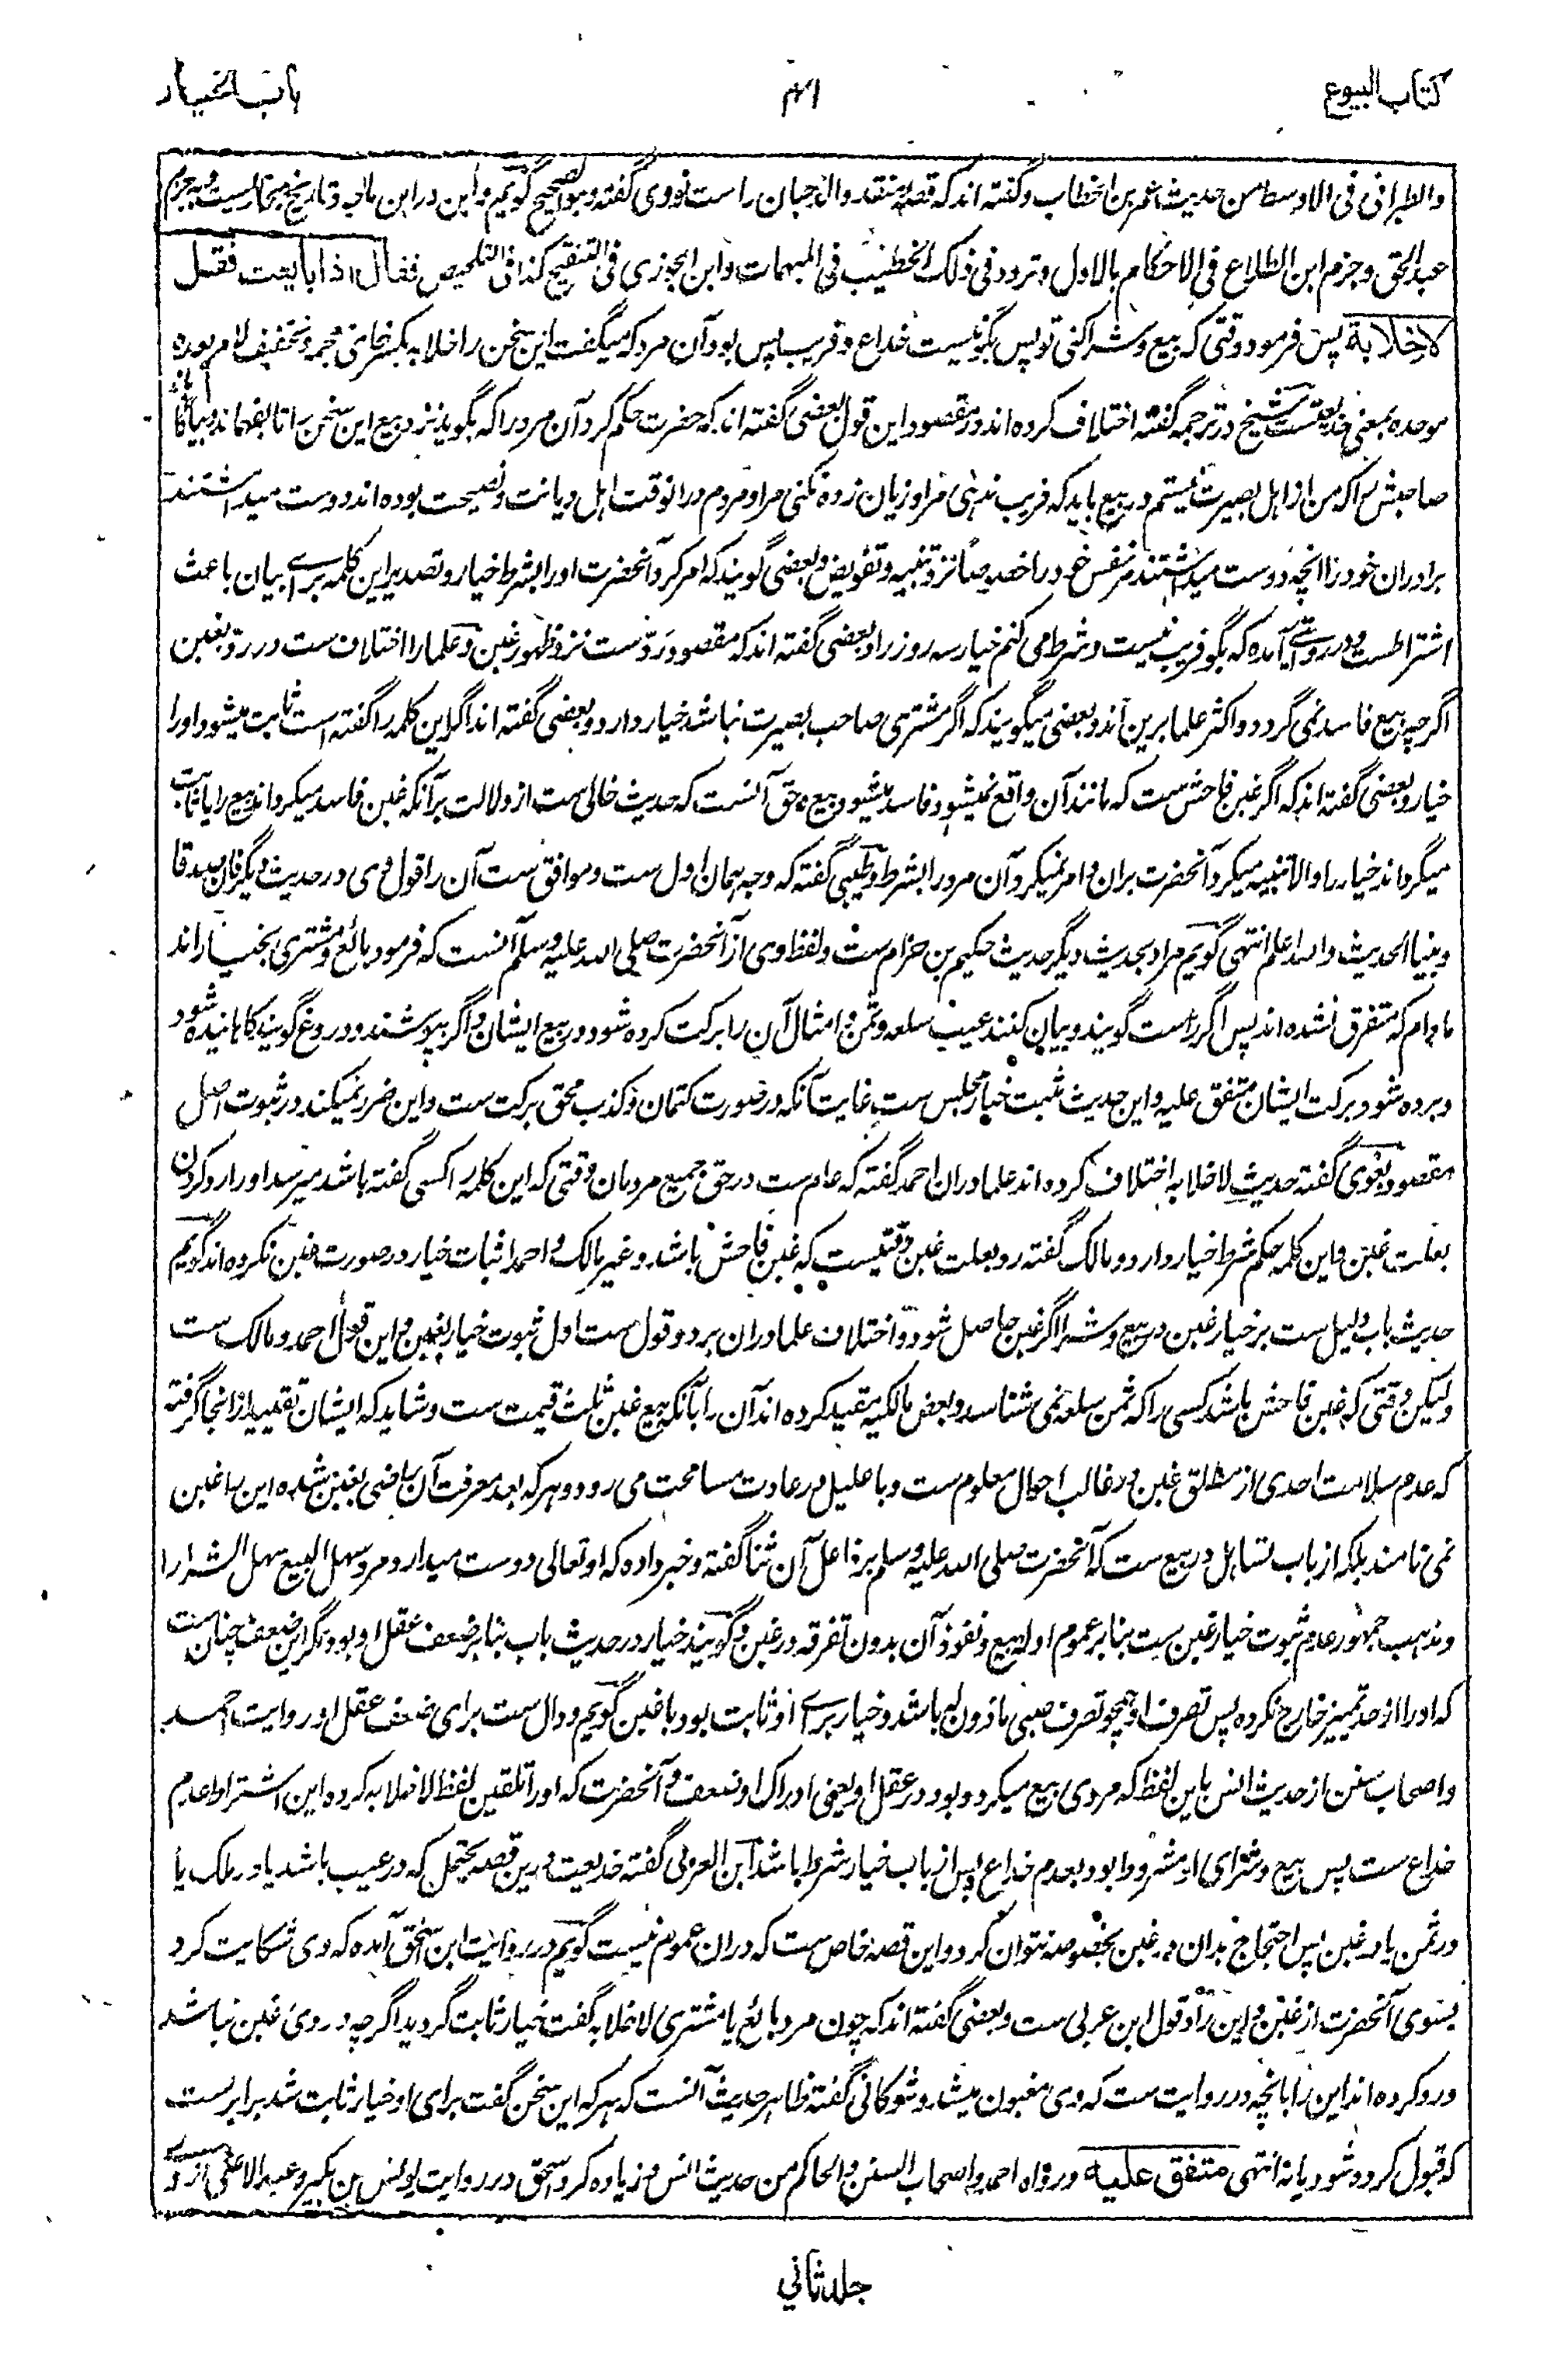 کتاب البیوع
۴۱
باب الخیار
والطبرانی فی الاوسط من حدیث عمر بن الخطاب و گفته اند که قصه منقذ والد حبان راست نووی گفته و هو الصحیح گویم و این در ابن ماجه و تاریخ بخاریست و به جزم
عبد الحق و جزم ابن الطلاع فی الاحکام بالاول و تردد فی ذلک الخطیب فی المبهمات و ابن الجوزی فی التنقیح کذا فی التلخیص فقال اذا بایعت فقل
لاخلابة پس فرمود وقتی که بیع و شرا کنی تو پس بگو نیست خداع و فریب پس بود آن مرد که میگفت این سخن را خلابه بکسر خای معجمه و تخفیف لام بوده
موحده بمعنی خدیعت ست شیخ در ترجمه گفته اختلاف کرده اند در مقصود این قول بعضی گفته اند که حضرت حکم کرد آن مرد را که بگوید نزد بیع این سخن را تا بفهماند و بیاگاهاند
صاحبش را که من از اهل بصیرت نیستم در بیع باید که فریب ندهی مرا و زیان زده نکنی مرا و مردم در انوقت اهل دیانت و نصیحت بوده اند دوست میداشتند
برادران خود را انچه دوست میداشتند مر نفس خود را خصوصا نزد تنبیه و تفویض و بعضی گویند که امر کرد آنحضرت او را بشرط خیار و تصدیر این کلمه برای بیان باعث
اشتراطست و در روایتی آمده که بگو فریب نیست و شرط می کنم خیار سه روز را و بعضی گفته اند که مقصود رد ست نزد ظهور غبن و علما را اختلاف ست در رد بغبن
اگرچه بیع فاسد نمی گردد و اکثر علما برین اند و بعضی میگویند که اگر مشتری صاحب بصیرت نباشد خیار دارد و بعضی گفته اند اگر این کلمه را گفته است ثابت میشود او را
خیار و بعضی گفته اند که اگر غبن فاحش ست که مانند آن واقع نمیشود فاسد میشود بیع و حق آنست که حدیث خالی ست از دلالت بر آنکه غبن فاسد میگرداند بیع را یا ثابت
میگرداند خیار را و الا تنبیه میکرد آنحضرت بران و امر نمیکرد آن مرد را بشرط و طیبی گفته که وجه همان اول ست و موافق ست آن را قول وی در حدیث دیگر فان صدقا
و بینا الحدیث والله اعلم انتهی گویم مراد بحدیث دیگر حدیث حکیم بن حزام ست و لفظ وی از آنحضرت صلی الله علیه وسلم آنست که فرمود بائع و مشتری بخیار اند
مادام که متفرق نشده اند پس اگر راست گویند و بیان کنند عیب سلعه و ثمن و امثال آن را برکت کرده شود در بیع ایشان و اگر بپوشند و دروغ گویند کاهانیده شود
و برده شود برکت ایشان متفق علیه و این حدیث مثبت خیار مجلس ست غایت آنکه در صورت کتمان و کذب محق برکت ست و این ضرر نمیکند در ثبوت اصل
مقصود بغوی گفته حدیث لاخلابه اختلاف کرده اند علما دران احمد گفته که عام ست در حق جمیع مردمان وقتی که این کلمه را کسی گفته باشد میرسد او را رد کردن
بعلت غبن و این کلمه حکم شرط خیار دارد و مالک گفته رد بعلت غبن وقتیست که غبن فاحش باشد و غیر مالک و احمد اثبات خیار در صورت غبن نکرده اند گویم
حدیث باب دلیل ست بر خیار غبن در بیع و شرا اگر غبن حاصل شود و اختلاف علما دران بر دو قول ست اول ثبوت خیار بغبن و این قول احمد و مالک ست
ولیکن وقتی که غبن فاحش باشد کسی را که ثمن سلعه نمی شناسد و بعض مالکیه مقید کرده اند آن را بآنکه بیع غبن ثلث قیمت ست و شاید که ایشان تقیید از انجا گرفته
که عدم سلامت احدی از مطلق غبن در غالب احوال معلوم ست و با قلیل در عادت مسامحت می رود و هر که بعد معرفت آن راضی بغبن شده این را غبن
نمی نامند بلکه از باب تساهل در بیع ست که آنحضرت صلی الله علیه وسلم بر فاعل آن ثنا گفته و خبر داده که او تعالی دوست میدارد مرد سهل البیع سهل الشرا را
و مذهب جمهور عدم ثبوت خیار غبن ست بنا بر عموم ادله بیع و نفوذ آن بدون تفرقه در غبن و گویند خیار در حدیث باب بنا بر ضعف عقل او بود مگر این ضعف چنان ست
که او را از حد تمییز خارج نکرده پس تصرف او همچو تصرف صبی ماذون له باشد و خیار برای او ثابت بود با غبن گویم و دال ست برای ضعف عقل او روایت احمد
و اصحاب سنن از حدیث انس باین لفظ که مردی بیع میکرد و بود در عقل او یعنی ادراک او ضعف و آنحضرت که او را تلقین لفظ لاخلابه کرده این اشتراط عدم
خداع ست پس بیع و شرای او مشروط بود بعدم خداع پس از باب خیار شرط باشد ابن العربی گفته خدیعت درین قصه یحتمل که در عیب باشد یا در ملک یا
در ثمن یا در غبن پس احتجاج بدان در غبن بخصوصه نتوان کرد و این قصه خاص ست که دران عموم نیست گویم در روایت ابن اسحق آمده که وی شکایت کرد
بسوی آنحضرت از غبن و این راد قول ابن عربی ست و بعضی گفته اند که چون مرد بائع یا مشتری لاخلابه گفت خیار ثابت گردید اگرچه در وی غبن نباشد
و رد کرده اند این را بانچه در روایت ست که وی مغبون میشد و شوکانی گفته ظاهر حدیث آنست که هر که این سخن گفت برای او خیار ثابت شد برابرست
که قبول کرده شود یا نه انتهی متفق علیه و رواه احمد و اصحاب السنن و الحاکم من حدیث انس و زیاده کرد اسحق در روایت یونس بن بکیر و عبد الاعلی از وی
جلد ثانی